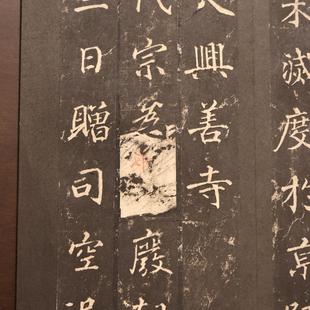 滅度於京
興善寺
代宗為
廢
三日贈司空